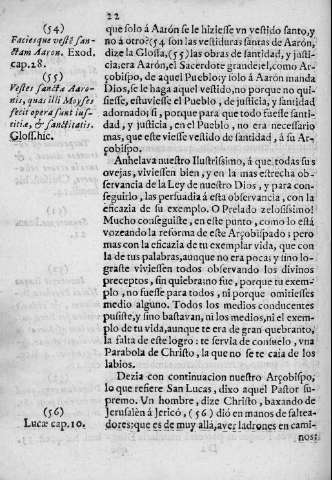 22
(54)
Faciesque vestẽ san-
ctam Aaron. Exod.
cap. 28.
(55)
Vestes sancta Aaro-
nis, quas illi Moyses
fecit opera sunt ius-
titia, & sanctitatis.
Gloss. hic.
(56)
Lucæ cap. 10.
que solo á Aarón se le hiziesse vn vestido santo, y
no á otro? (54 son las vestiduras santas de Aarón,
dize la Glossa, (55) las obras de santidad, y justi-
cia: era Aarón, el Sacerdote grande: el, como Ar-
çobispo, de aquel Pueblo; y solo á Aarón manda
Dios, se le haga aquel vestido, no porque no qui-
siesse, estuviesse el Pueblo, de justicia, y santidad
adornado; si, porque para que todo fuesse santi-
dad, y justicia, en el Pueblo, no era necessario
mas, que este viesse vestido de santidad, á su Ar-
çobispo.
Anhelava nuestro Ilustrissimo, á que todas sus
ovejas, viviessen bien, y en la mas estrecha ob-
servancia de la Ley de nuestro Dios, y para con-
seguirlo, las persuadia á esta observancia, con la
eficazia de su exemplo. O Prelado zelosissimo!
Mucho conseguiste, en este punto, como lo está
vozeando la reforma de este Arçobispado: pero
mas con la eficazia de tu exemplar vida, que con
la de tus palabras, aunque no era poca: y sino lo-
graste viviessen todos observando los divinos
preceptos, sin quiebra: no fue, porque tu exem-
plo, no fuesse para todos, ni porque omitiesses
medio alguno. Todos los medios conducentes
pusiste, y sino bastavan, ni los medios, ni el exem-
plo de tu vida, aunque te era de gran quebranto,
la falta de este logro: te servia de consuelo, vna
Parabola de Christo, la que no se te caía de los
labios.
Dezia con continuacion nuestro Arçobispo,
lo que refiere San Lucas, dixo aquel Pastor su-
premo. Un hombre, dize Christo, baxando de
Jerusalèn á Jericó, (56) dió en manos de saltea-
dores: que es de muy allá, aver ladrones en cami-
nos: